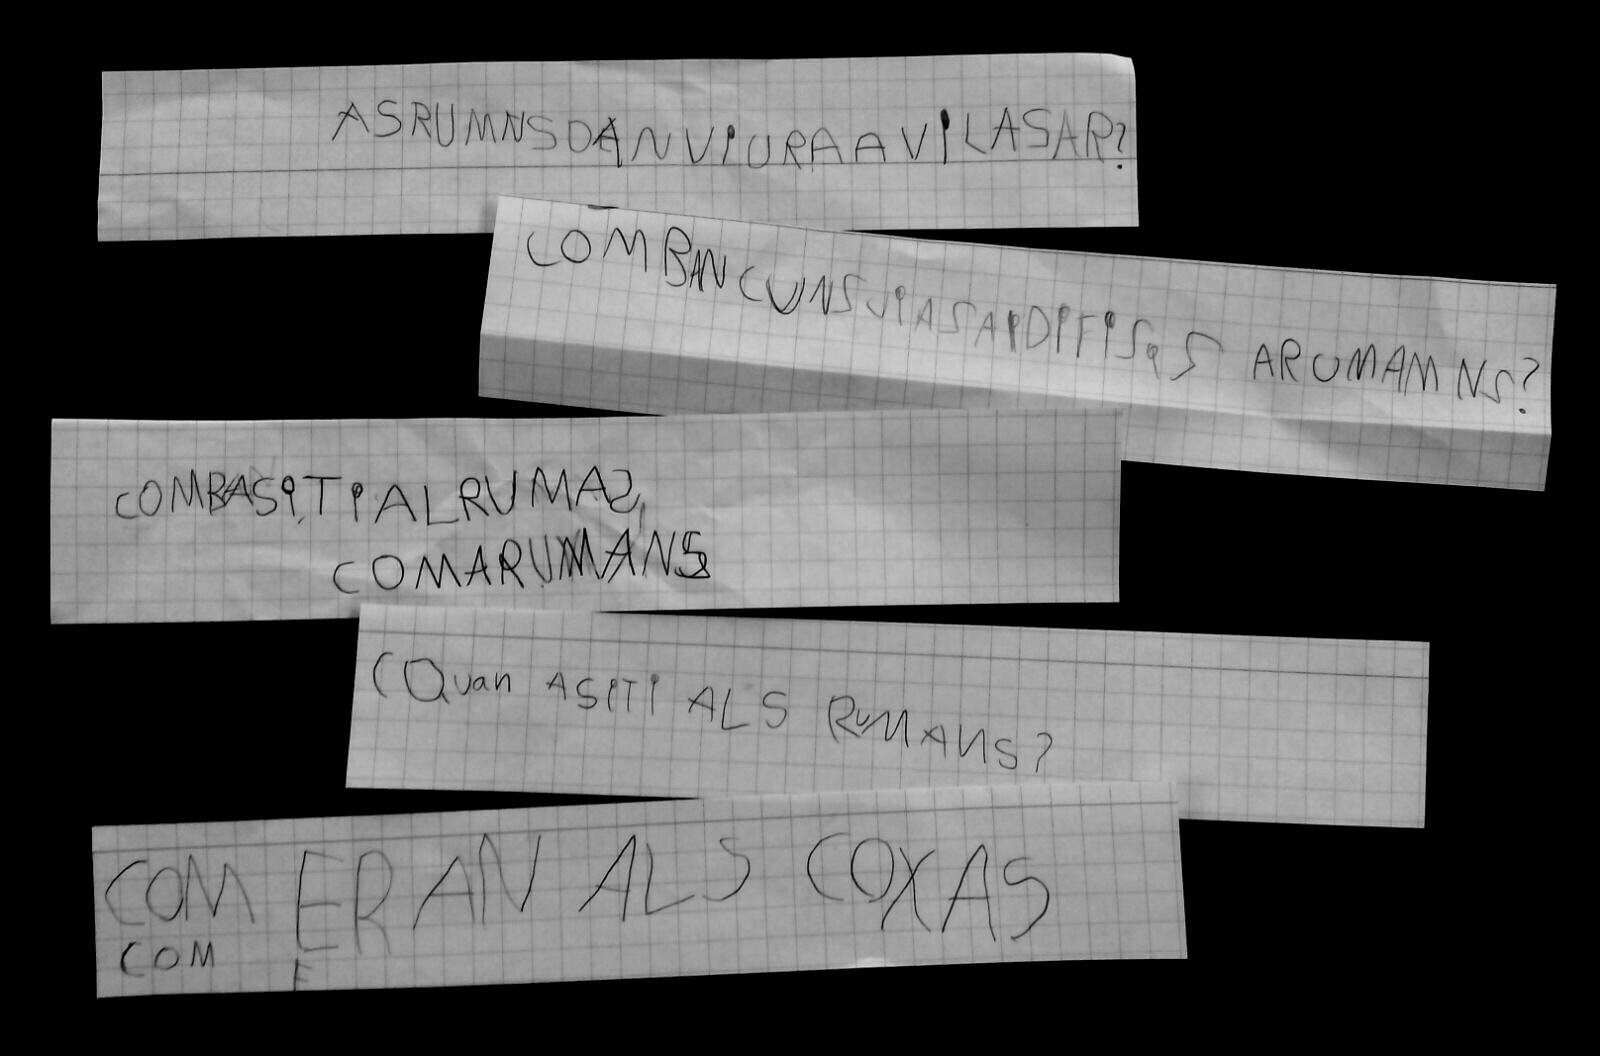 ASRUMNSOANVIURAAVILASAR?
COMBANCUNSVIASAIDIFISQS ARUMAMNS?
COMBASITIALRUMAS,
COMARUMANS
(QUan ASITI ALS RUMANS?
COM ERAN ALS COXAS
COM E